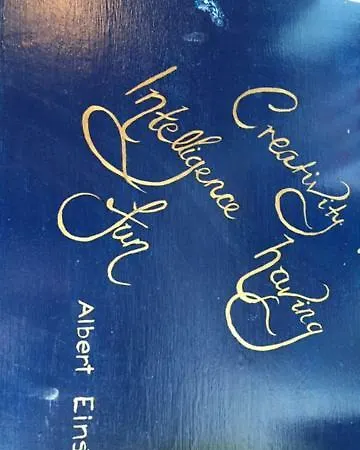 Creativity
Intelligence having
fun
Albert Eins